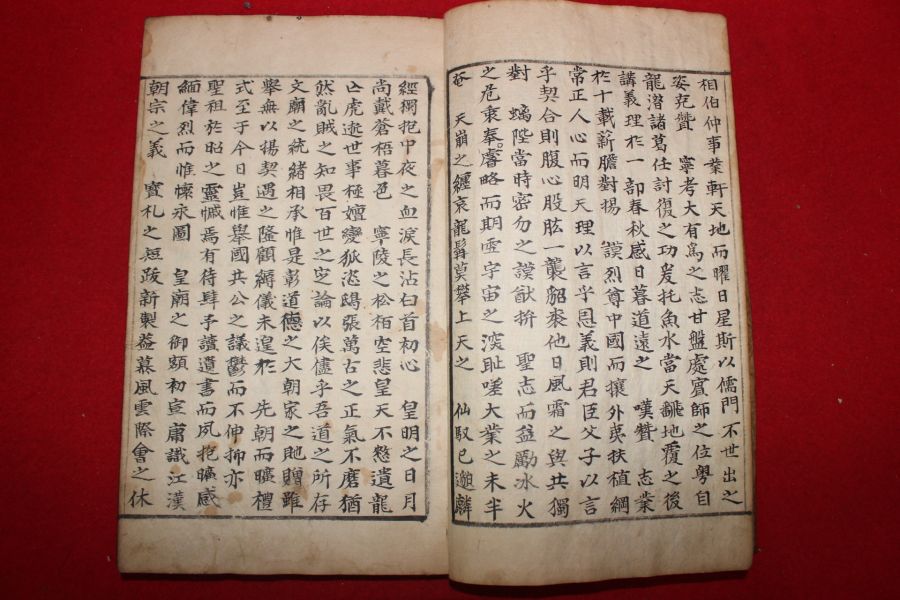 相伯仲事業軒天地而曜日星斯以儒門不世出之
姿克贊 寧考大有爲之志甘盤處賓師之位粤自
龍潛諸葛任討復之功爰托魚水當天飜地覆之後
講義理於一部春秋感日暮道遠之 嘆贊 志業
於十載薪膽對揚 謨烈尊中國而攘外夷扶植綱
常正人心而明天理以言乎恩義則君臣父子以言
乎契合則腹心股肱一襲貂裘他日風霜之與共獨
對 螭陛當時密勿之謨猷拚 聖志而益勵氷火
之危衷奉睿略而期雪宇宙之深耻嗟大業之未半
奄 天崩之纏哀龍髯莫攀上天之 仙馭已邈麟
經獨抱中夜之血淚長沾白首初心 皇明之日月
尚戴蒼梧暮色 寧陵之松栢空悲皇天不憗遺龍
亡虎逝世事極嬗變狐恣鴟張萬古之正氣不磨猶
然亂賊之知畏百世之定論以俟儘乎吾道之所存
文廟之統緖相承惟是彰道德之大朝家之貤贈雖
擧無以揚契遇之隆顧縟儀未遑於 先朝而曠禮
式至于今日豈惟擧國共公之議鬱而不伸抑亦
聖祖於昭之靈慽焉有待肆予讀遺書而夙抱曠感
緬偉烈而惟懷永圖 皇廟之御額初宣庸識江漢
朝宗之義 寶札之短跋新製益慕風雲際會之休